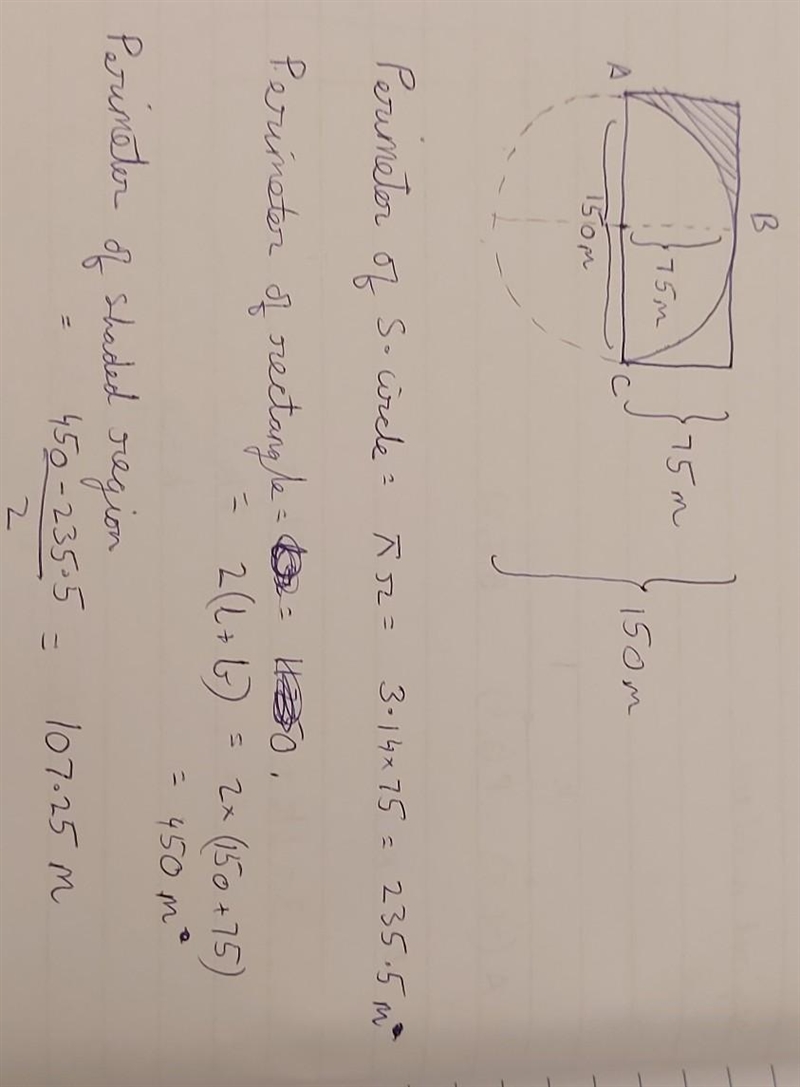 B
A
C
75m
150m
75 m
150m
Perimeter of S.circle = πr = 3.14×75 = 235.5 m
Perimeter of rectangle = =
= 2(l+b) = 2×(150+75)
= 450 m
Perimeter of shaded region
= 450-235.5 = 107.25 m
2